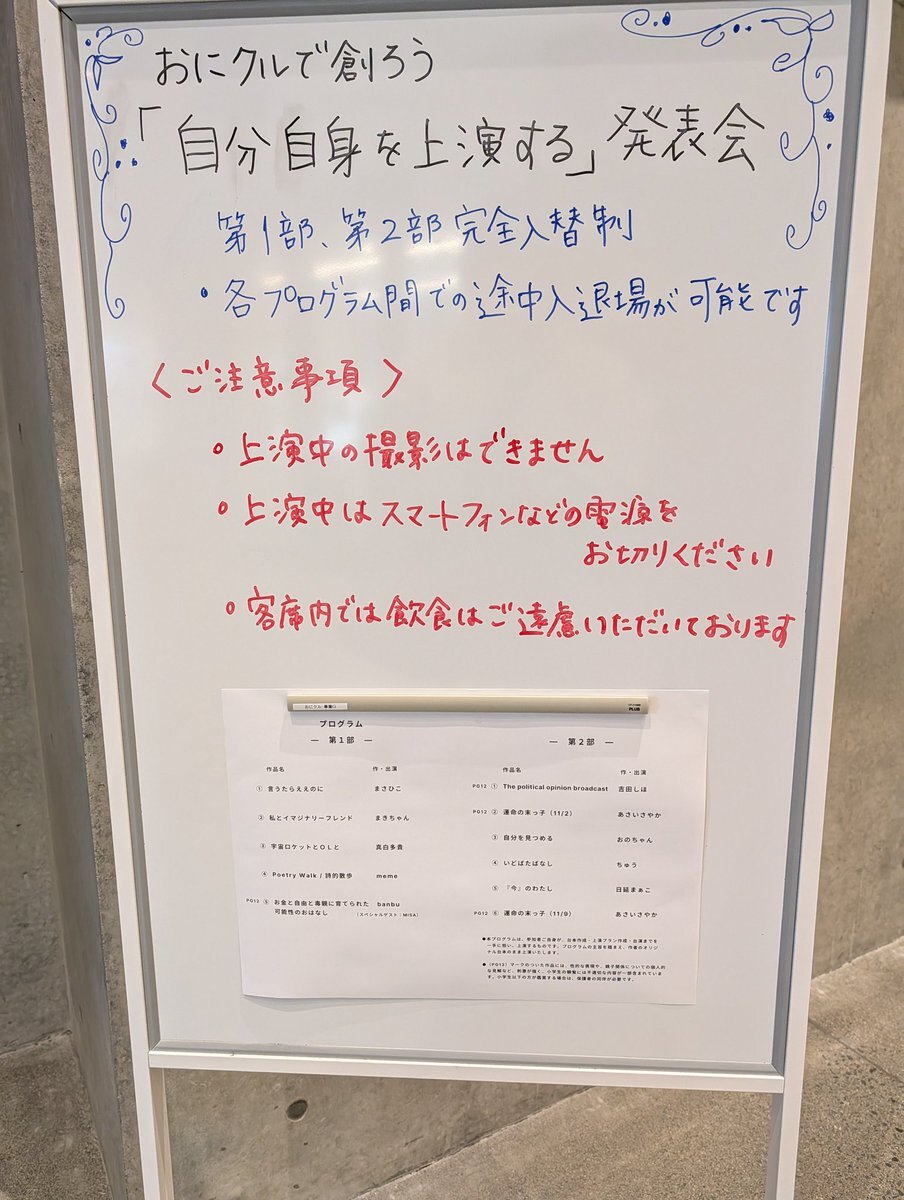 おにクルで創ろう
「自分自身を上演する」発表会
第1部、第2部 完全入替制
・各プログラム間での途中入退場が可能です
〈ご注意事項〉
・上演中の撮影はできません
・上演中はスマートフォンなどの電源を
お切りください
・客席内では飲食はご遠慮いただいております
おにクル
PLUS
プログラム
― 第1部 ―
作品名 作・出演
① 言うたらええのに まさひこ
② 私とイマジナリーフレンド まきちゃん
③ 宇宙ロケットとOLと 真白多貴
④ Poetry Walk / 詩的散歩 meme
PG12 ⑤ お金と自由と毒親に育てられた banbu
可能性のおはなし (スペシャルゲスト:MISA)
― 第2部 ―
作品名 作・出演
PG12 ① The political opinion broadcast 吉田しほ
PG12 ② 運命の末っ子 (11/2) あさいさやか
③ 自分を見つめる おのちゃん
④ いどばたばなし ちゅう
⑤ 『今』のわたし 日延まぁこ
PG12 ⑥ 運命の末っ子 (11/9) あさいさやか
●本プログラムは、参加者ご自身が、台本作成・上演プラン作成・出演までを
一手に担い、上演するものです。プログラムの主旨を踏まえ、作者のオリジ
ナル台本のまま上演いたします。
●(PG12)マークのついた作品には、性的な表現や、親子関係についての個人的
な見解など、刺激が強く、小学生の観覧には不適切な内容が一部含まれていま
す。小学生以下の方が鑑賞する場合は、保護者の同伴が必要です。